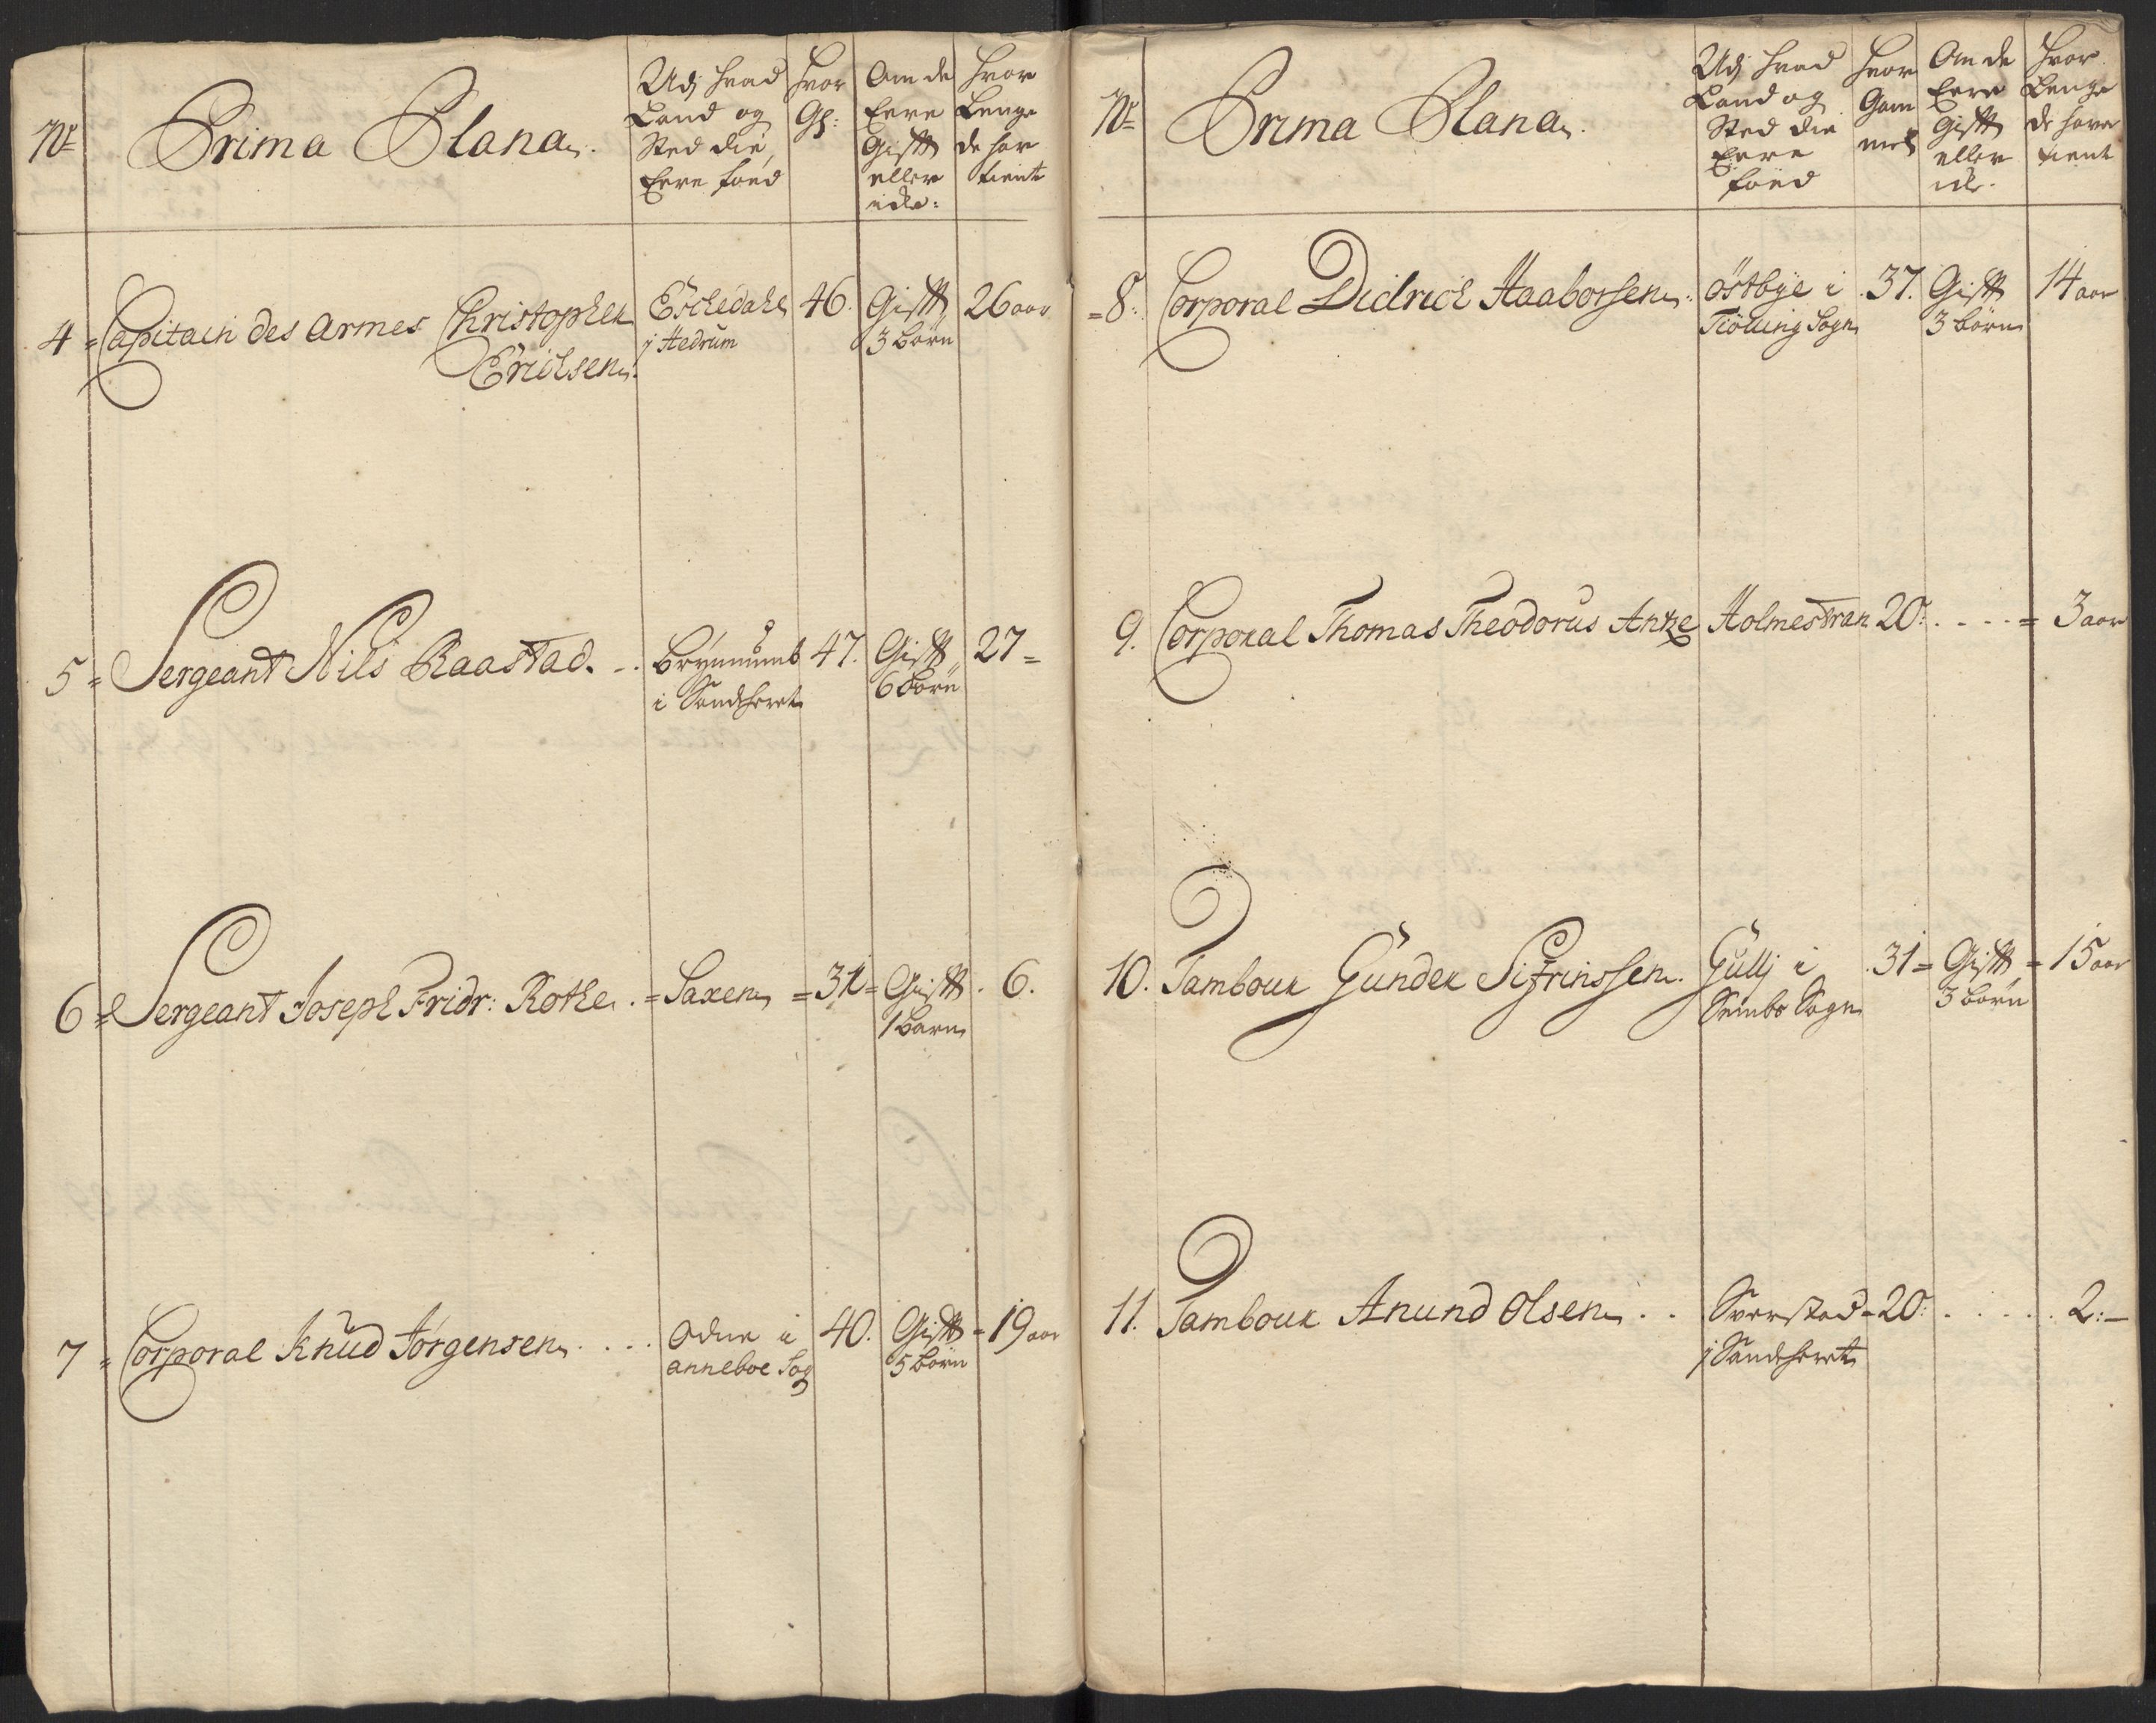 No
Prima Plana.
Udj hvad
Land og
Sted die
Eere föed
hvor
Gl:
Om de
Eere
Gifft
eller
icke:
hvor
Lenge
de har
tient
4 = Capitain des Armes Christopher
Erichsen.
Eschedahl
j Hedrum
46.
Gifft
3 börn
26 aar
5 = Sergeant Nils Raastad. ..
i Sandherret
47.
Gifft
6 börn
27 =
6 = Sergeant Joseph Fridr: Rothe. = Saxen = 31 = Gifft . 6.
1 barn
7 = Corporal Knud Jörgensen. . . .
i
anneboe Sog
40.
Gifft
5 börn
= 19 aar
No
Prima Plana.
Udj hvad
Land og
Sted die
Eere
föed
hvor
Gam
mel
Om de
Eere
Gifft
eller
ick.
hvor
Lenge
de have
tient
= 8. Corporal Didrich Haaborsen.
Östbye i
Tiölling Sogn
37.
Gifft
3 börn
14 aar
9. Corporal Thomas Theodorus Anke Holmestran 20: . . . . = 3 aar
10. Tambour Gunder Sifrinssen. Gullj i 31 = Gifft = 15 aar
Sembs Sogn
3 börn
11. Tambour Anund Olsen. . .
j Sandherret
20: . . . . . 2: —